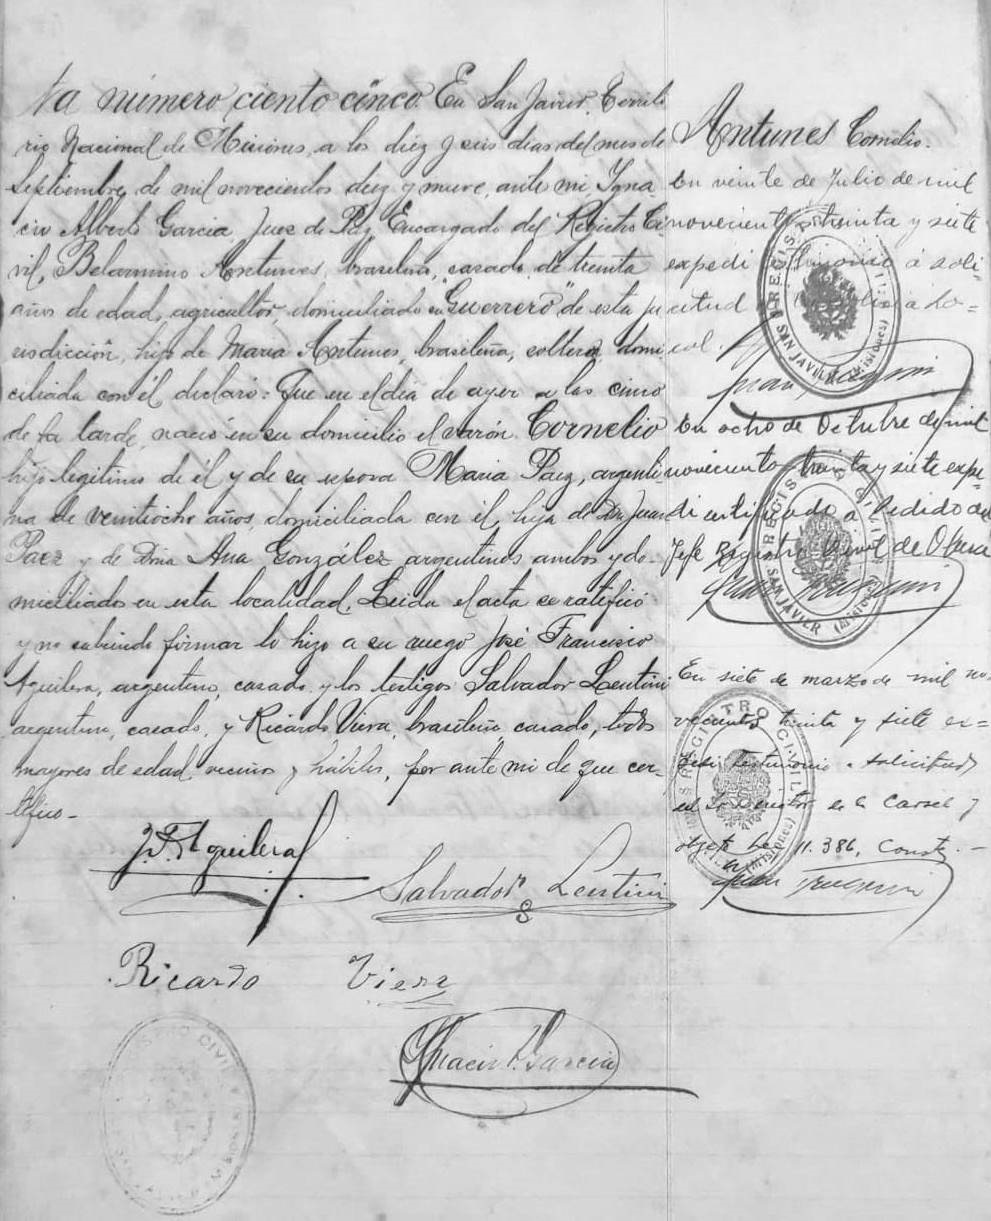 ta número ciento cinco. En San Javier, Territo
rio Nacional de Misiones, a los diez y seis dias del mes de
Septiembre de mil novecientos diez y nueve, ante mi Igna
cio Alberto Garcia, Juez de Paz Encargado del Registro Ci
vil, Belarmino Antunes, brasileño, casado, de treinta
años de edad, agricultor, domiciliado en "Guerrero" de esta ju
risdicción, hijo de Maria Antunes, brasileña, soltera, domi
ciliada con él declaró: Que en el dia de ayer a las cinco
de la tarde, nació en su domicilio el varón Cornelio
hijo legitimo de él y de su esposa Maria Paez, argenti
na de veintiocho años, domiciliada con él, hija de Don Juan
Paez y de Doña Ana González, argentinos ambos y do-
miciliados en esta localidad. Leida el acta se ratificó
y no sabiendo firmar lo hizo a su ruego José Francisco
Aguilera, argentino, casado y los testigos Salvador Lentini
argentino, casado, y Ricardo Viera, brasileño casado, todos
mayores de edad, vecinos y hábiles, por ante mi de que cer-
tifico-
J. F. Aguilera
Salvador Lentini
Ricardo Viera
Ignacio A. Garcia
REGISTRO CIVIL
Antunes Cornelio.
En veinte de Julio de mil
novecientos treinta y siete
expedi testimonio á soli-
citud de Policia Lo=
cal.
Juan
REGISTRO CIVIL
SAN JAVIER (Misiones)
En ocho de Octubre de mil
novecientos treinta y siete expe-
di certificado a Pedido del
Jefe Registro Civil de Oberá
Juan
REGISTRO CIVIL
SAN JAVIER (Misiones)
En siete de marzo de mil no-
vecientos treinta y siete ex-
pedi testimonio a solicitud
en la Carcel y
objeto Ley 11.386, Conste.-
Juan
REGISTRO CIVIL
(Misiones)